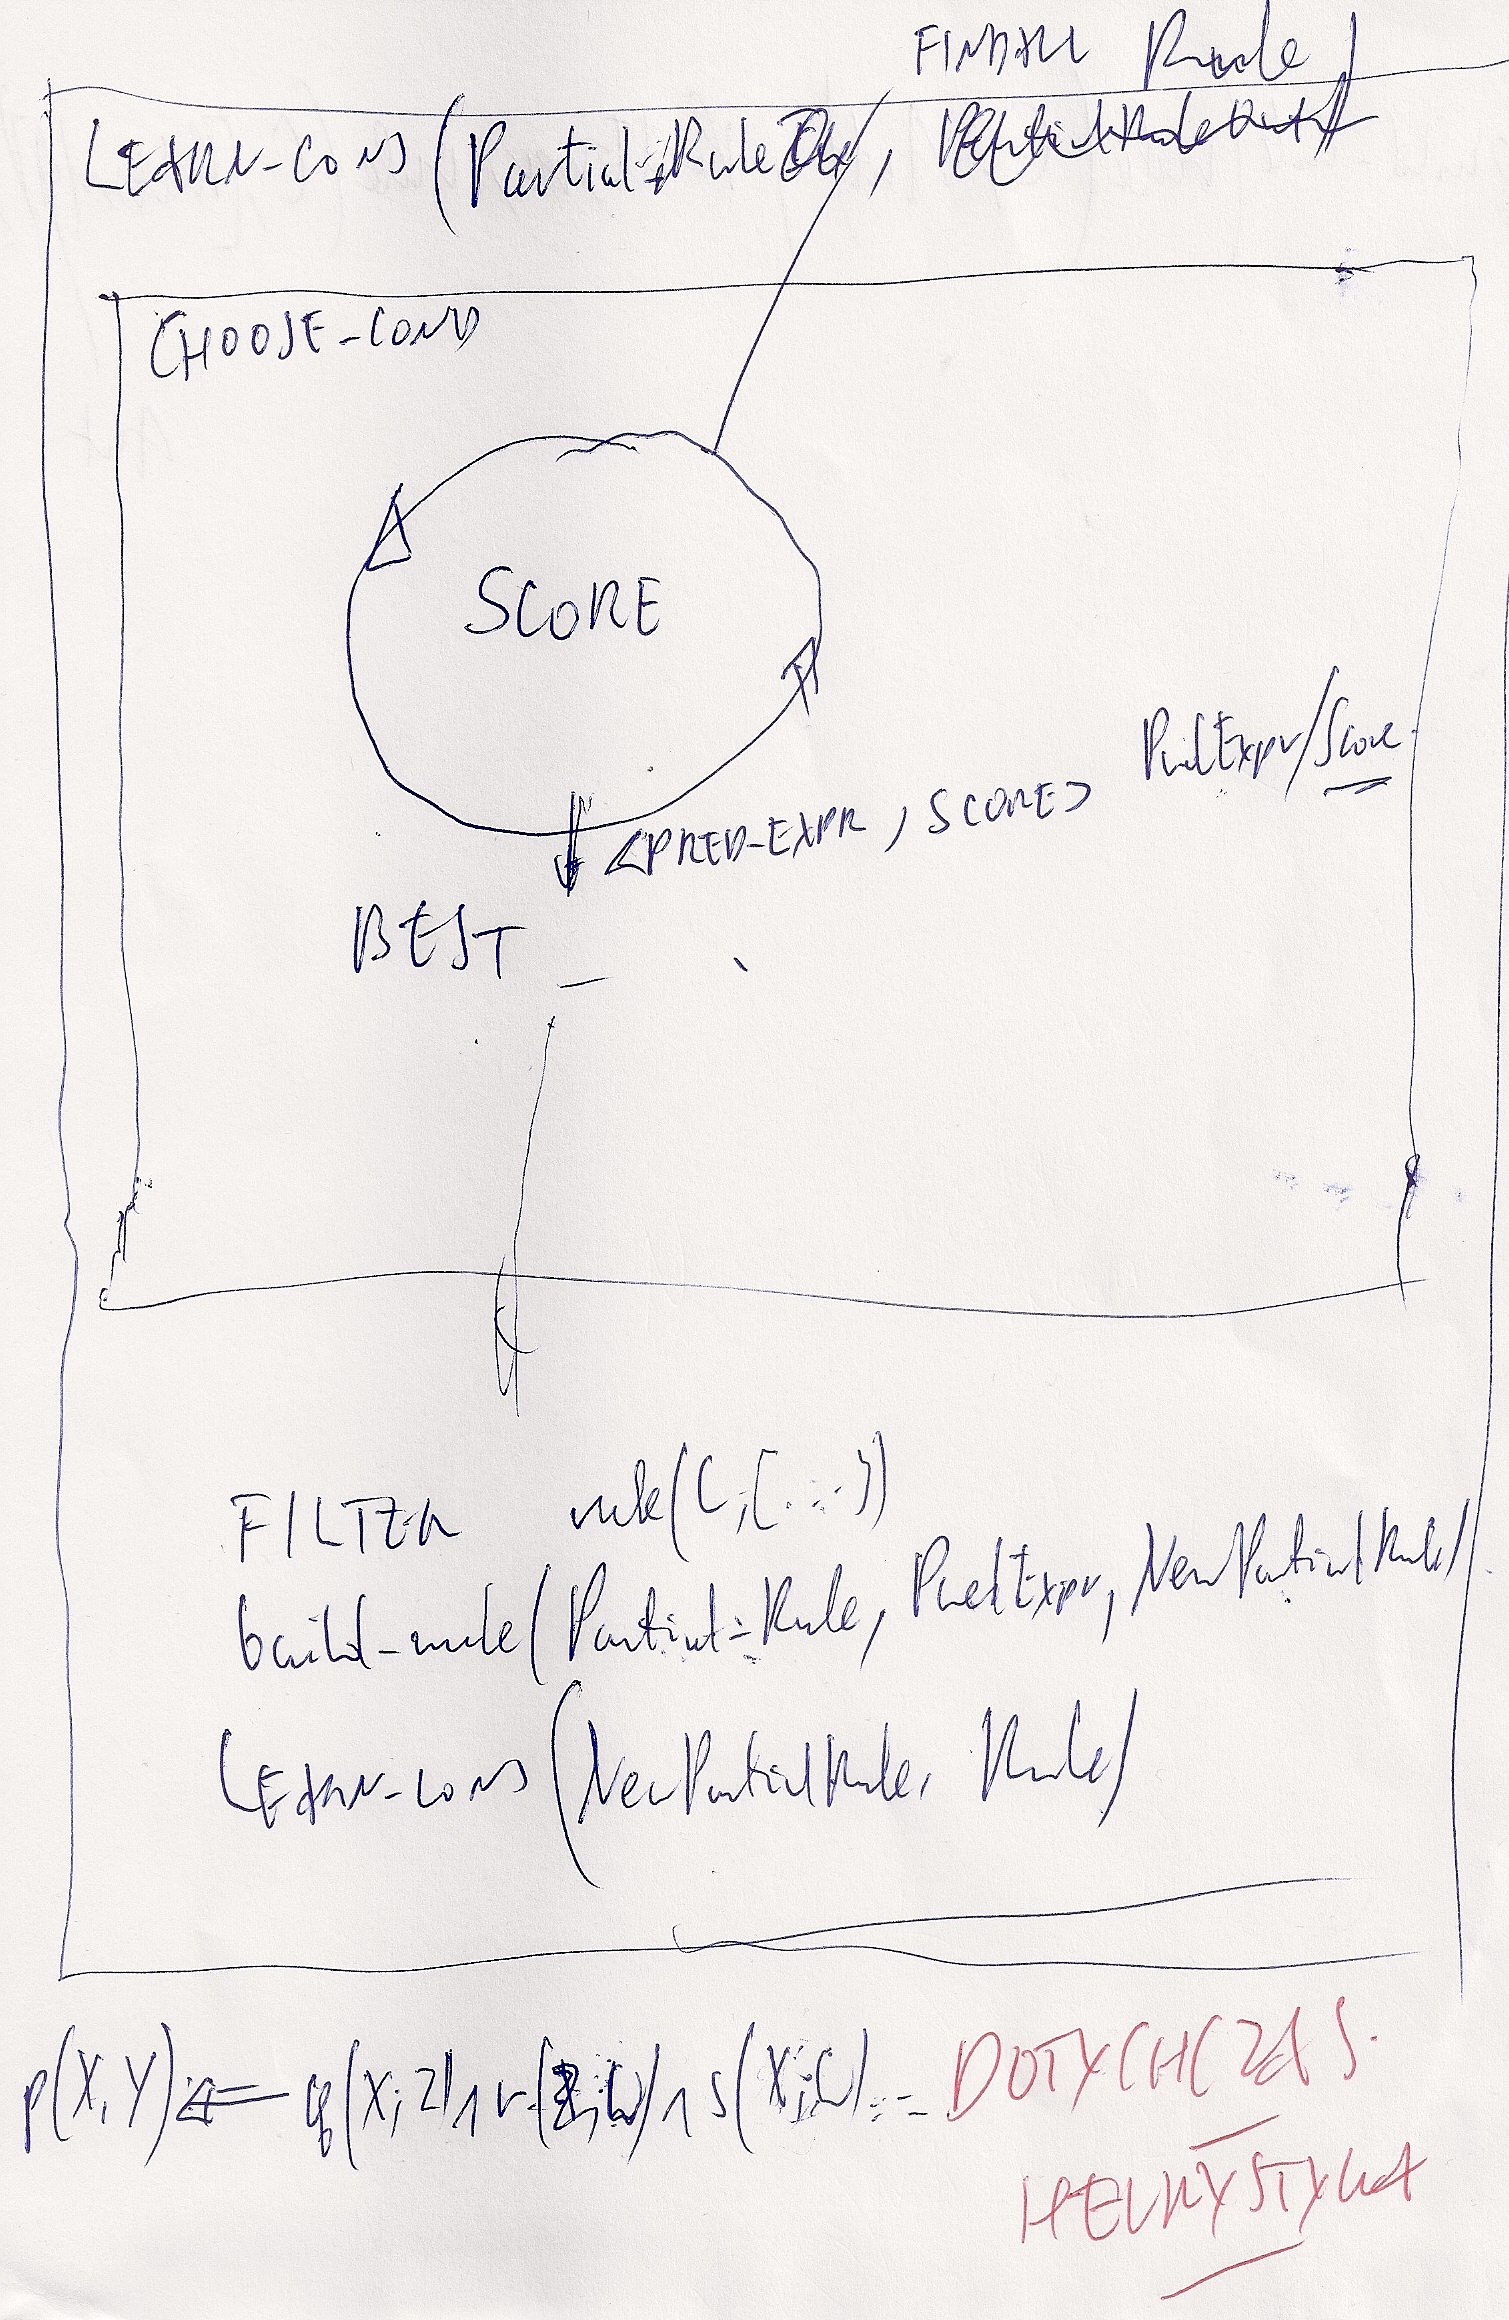 FINDALL Rule)
LEARN-CONJ (Partial-Rule,
CHOOSE-COND
SCORE
PredExpr/Score
<PRED-EXPR, SCORE>
BEST _
FILTER rule(C,[...])
build-rule(Partial-Rule, PredExpr, NewPartialRule)
LEARN-CONJ (NewPartialRule, Rule)
p(X,Y) <= q(X,Z) ∧ r(Z,U) ∧ s(X,U) ... DOTYCHCZAS.
HEURYSTYKA